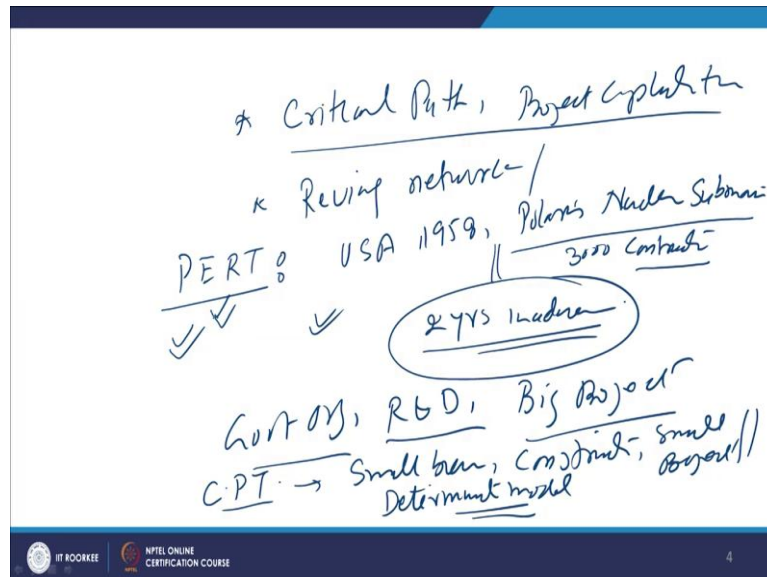 * Critical Path, Project
* Reving network /
PERT: USA, 1958, Polaris Nuclear Submarine
3000 Contract
2 yrs in
Govt Org, R&D, Big Project
C.P.T. → Small, Construct, Small Project //
Determinist model
IIT ROORKEE
NPTEL ONLINE
CERTIFICATION COURSE
4